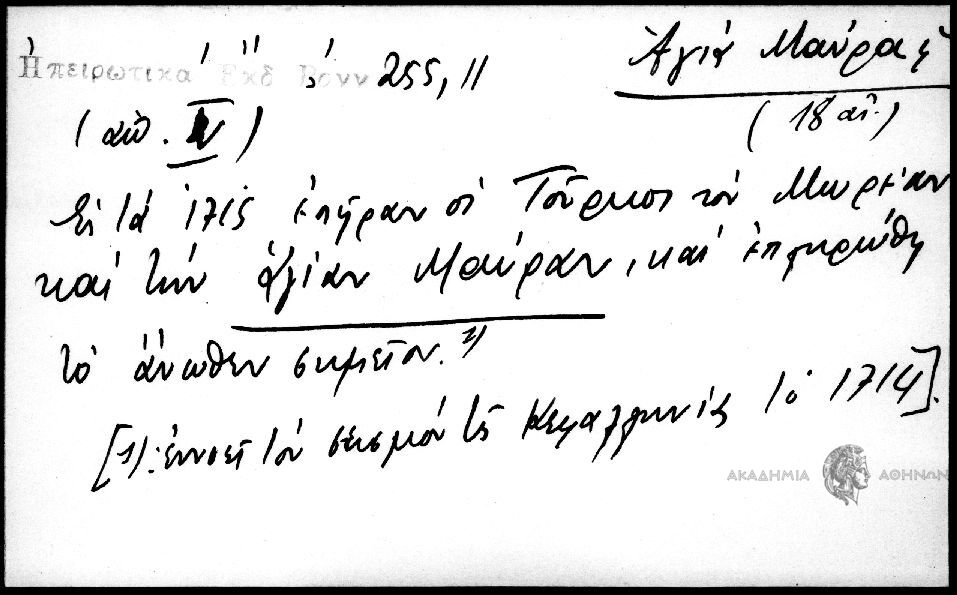 Ἠπειρωτικά Ἔκδ Βόνν 255, 11
Ἁγία Μαύρα
(ἀπ. IV)
(18 αἰ.)
Εἰς τά 1715 ἐπῆραν οἱ Τοῦρκοι τόν Μωρέαν
καί τήν ἁγίαν Μαύραν, καί ἐπληρώθη
τό ἄνωθεν σημεῖον. 1)
[1): ἐννοεῖ τόν σεισμόν τῆς Κεφαλληνίας τό 1714].
ΑΚΑΔΗΜΙΑ ΑΘΗΝΩΝ